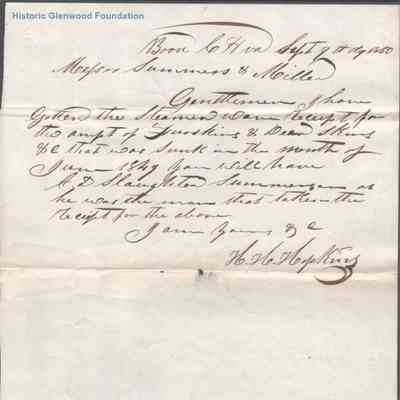 Historic Glenwood Foundation
Boon C H va Sept 9th 1850
Messrs Summers & Miller
Gentlemen I have
the Steamer receipt for
the ampt of & Dear Skins
&C that was Sunk in the month of
June 1849 you will have
A D Slaughter Summoned as
he was the man that taken the
receipt for the above
I am yours &C
H. H. Hopkins